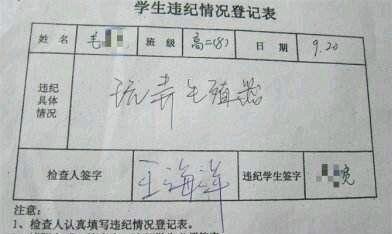 学生违纪情况登记表
姓名 毛 班级 高二(8) 日期 9.20
违纪具体情况 玩弄生殖器
检查人签字 王海洋 违纪学生签字 亮
注意:
1、检查人认真填写违纪情况登记表。